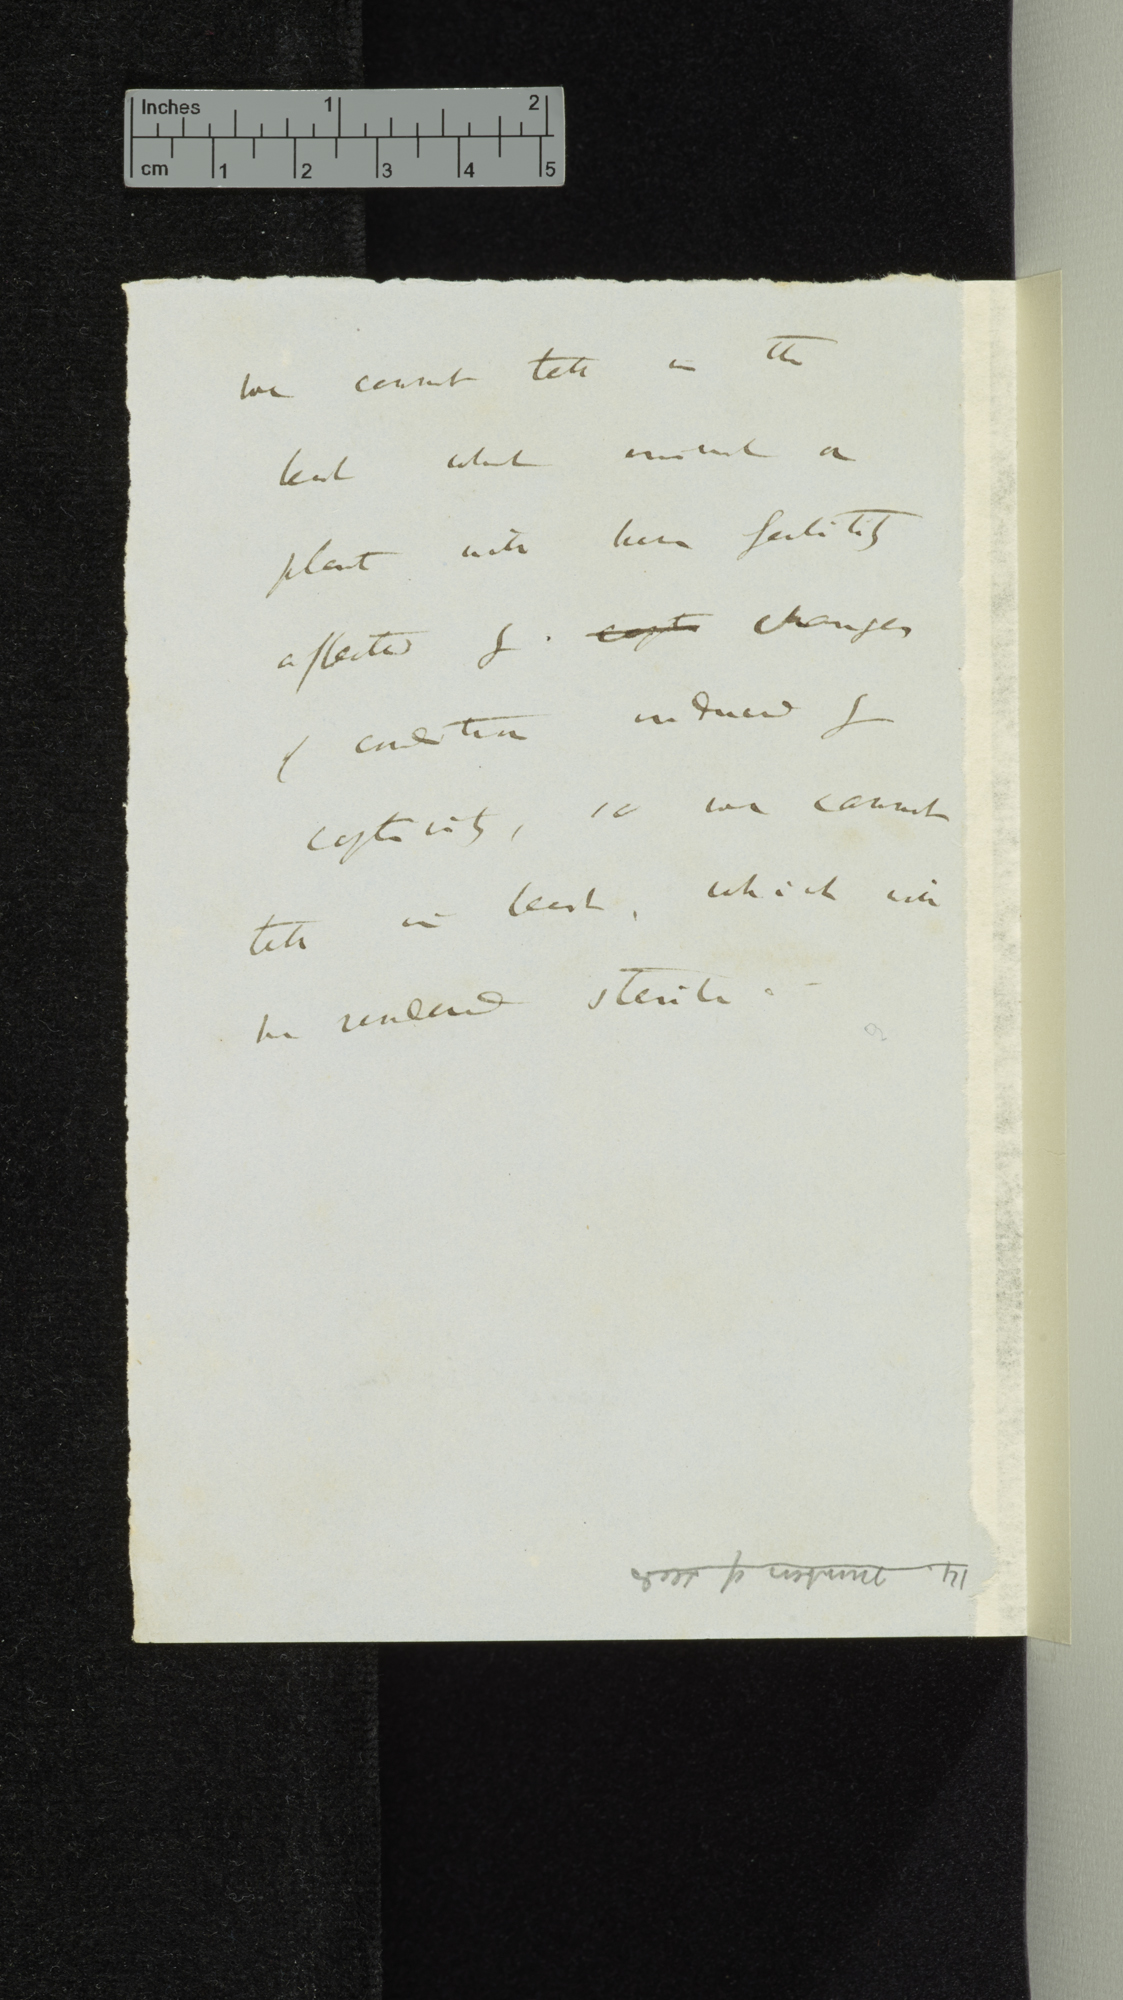 Inches 1 2
cm 1 2 3 4 5
we cannot tell in the
least what animal or
plant will have fertility
affected by capti changes
of condition induced by
captivity, so we cannot
tell in least, which will
be rendered sterile.—
14. number of seeds